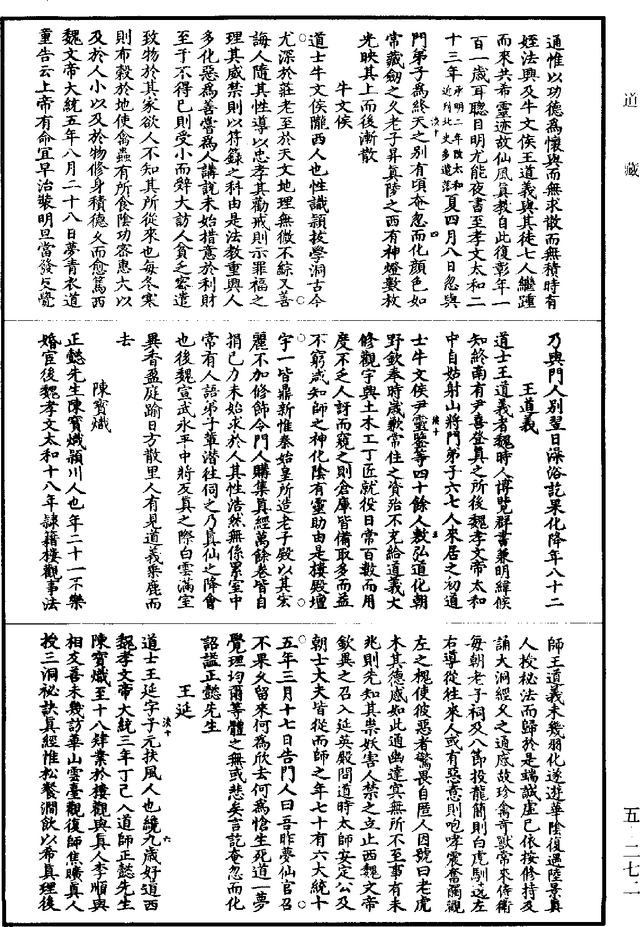 道藏
通惟以功德爲懷與而無求散而無積時有
姪法興及牛文侯王道義與其徒七人繼踵
而來共希靈迹故仙風真教自此復彰年一
百一歲耳聰目明尤能夜書至孝文太和二
十三年夏四月八日忽與
門弟子爲終天之別有頃奄忽而化顏色如
常藏劒之久老子昇真陵之西有神燈數枚
光映其上而後漸散
牛文侯
道士牛文侯隴西人也性識頴拔學洞古今
尤深於莊老至於天文地理無微不綜又善
誨人隨其性導以忠孝其勸戒則示罪福之
理其威禁則以符籙之科由是法教重興人
多化惡爲善嘗爲人講說未始措意於利財
至于不得已則受小而辭大訪人貧乏密遣
致物於其家欲人不知其所從來也每冬寒
則布穀於地使禽蟲有所食陰功密惠大以
及於人小以及於物修身積德久而愈篤西
魏文帝大統五年八月二十八日夢青衣道
童告云上帝有命宜早治裝明旦當發及覺
乃與門人別翌日澡浴訖果化降年八十二
王道義
道士王道義者魏時人博覽群書兼明緯候
知終南有尹喜登真之所後魏孝文帝太和
中自姑射山將門弟子六七人來居之初道
士牛文侯尹靈鑒等四十餘人敷弘道化朝
野欽奉時歲歉常住之資殆不充給道義大
修觀宇興土木工丁匠就役日常百數而用
度不乏人訝而窺之則倉庫皆備取多而益
不窮咸知師之神化陰有靈助由是樓殿壇
宇一皆鼎新惟秦始皇所造老子殿以其宏
麗不加修飾令門人購集真經萬餘卷皆自
捐已力未始求於人其性浩然無係累室中
常有人語弟子輩潛往伺之乃真仙之降會
也後魏宣武永平中將反真之際白雲滿室
異香盈庭踰日方散里人有見道義乘鹿而
去
陳寶熾
正懿先生陳寶熾頴川人也年二十一不樂
婚宦後魏孝文太和十八年隷籍樓觀事法
師王道義未幾羽化遂遊華陰復遇陸景真
人授秘法而歸於是端誠虛已依按修持及
誦大洞經久之通感故珍禽奇獸常來侍衛
每朝老子祠及八節投龍簡則白虎馴遶左
右導從往來人或有惡意則咆哮震奮觸觀
左之槐使彼惡者驚畏自匿人因號曰老虎
木其德感如此通幽達冥無所不至事有未
兆則先知其祟妖害人禁之立止西魏文帝
欽異之召入延英殿問道時太師安定公及
朝士大夫皆從而師之年七十有六大統十
五年三月十七日告門人曰吾昨夢仙官召
不果久留來何爲欣去何爲愴生死道一夢
覺理均爾等體之無或悲矣言訖奄忽而化
詔謚正懿先生
王延
道士王延字子元扶風人也纔九歲好道西
魏孝文帝大統三年丁已入道師正懿先生
陳寶熾至十八肄業於樓觀與真人李順興
相友善未幾訪華山雲臺觀復師焦曠真人
授三洞祕訣真經惟松餐澗飲以希真理後
五 二七二